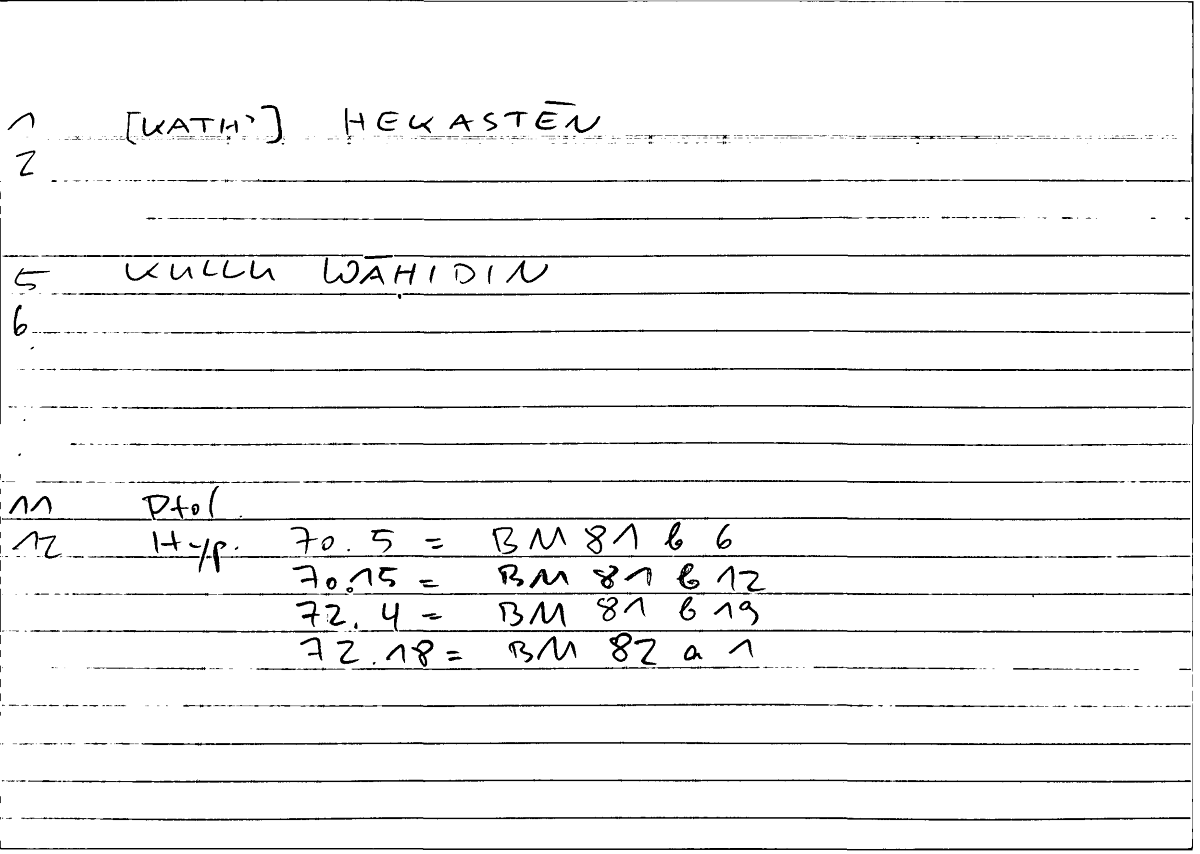 1 [KATH'] HEKASTĒN
2
5 KULLU WĀḤIDIN
6
11 Ptol.
12 Hyp. 70.5 = BM 81 b 6
70.15 = BM 81 b 12
72.4 = BM 81 b 19
72.18 = BM 82 a 1